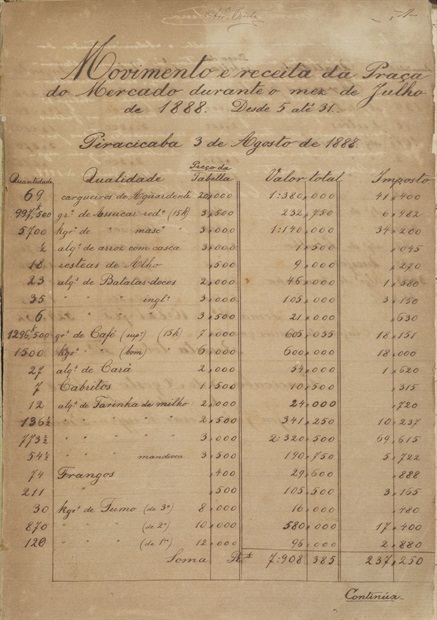 Movimento e receita da Praça
do Mercado durante o mez de Julho
de 1888. Desde 5 até 31.
Piracicaba 3 de Agosto de 1888.
Quantidade Qualidade Preço da Tabella Valor total Imposto
69 cargueiros de Aguardente 20,000 1:380,000 41,400
997,500 gr.ᵒ de assucar red.ᵒ (15k) 3,500 232,750 6,982
5700 kgr.ᵒ de " masc.ᵒ " 3,000 1:140,000 34,200
½ alq.ᵉ de arroz com casca 3,000 1,500 ,045
18 resteas de Alho ,500 9,000 ,270
23 alq.ᵉ de Batatas doces 2,000 46,000 1,380
35 " " " ingl.ᵃ 3,000 105,000 3,150
6 " " " " 3,500 21,000 ,630
1296,500 gr.ᵒ de Café (15k) 7,000 605,035 18,151
1500 kgr.ᵒ " (bom) 6,000 600,000 18,000
27 alq.ᵉ de Cará 2,000 54,000 1,620
7 Cabritos 1,500 10,500 ,315
12 alq.ᵉ de Farinha de milho 2,000 24,000 ,720
136½ " " " " 2,500 341,250 10,237
773½ " " " " 3,000 2:320,500 69,615
54½ " " " mandioca 3,500 190,750 5,722
74 Frangos ,400 29,600 ,888
211 " ,500 105,500 3,165
30 kgr.ᵒ de Fumo (de 3ᵃ) 8,000 16,000 ,480
870 " " (de 2ᵃ) 10,000 580,000 17,400
120 " " (de 1ᵃ) 12,000 96,000 2,880
Soma R.ˢ 7:908,385 237,250
Continúa.